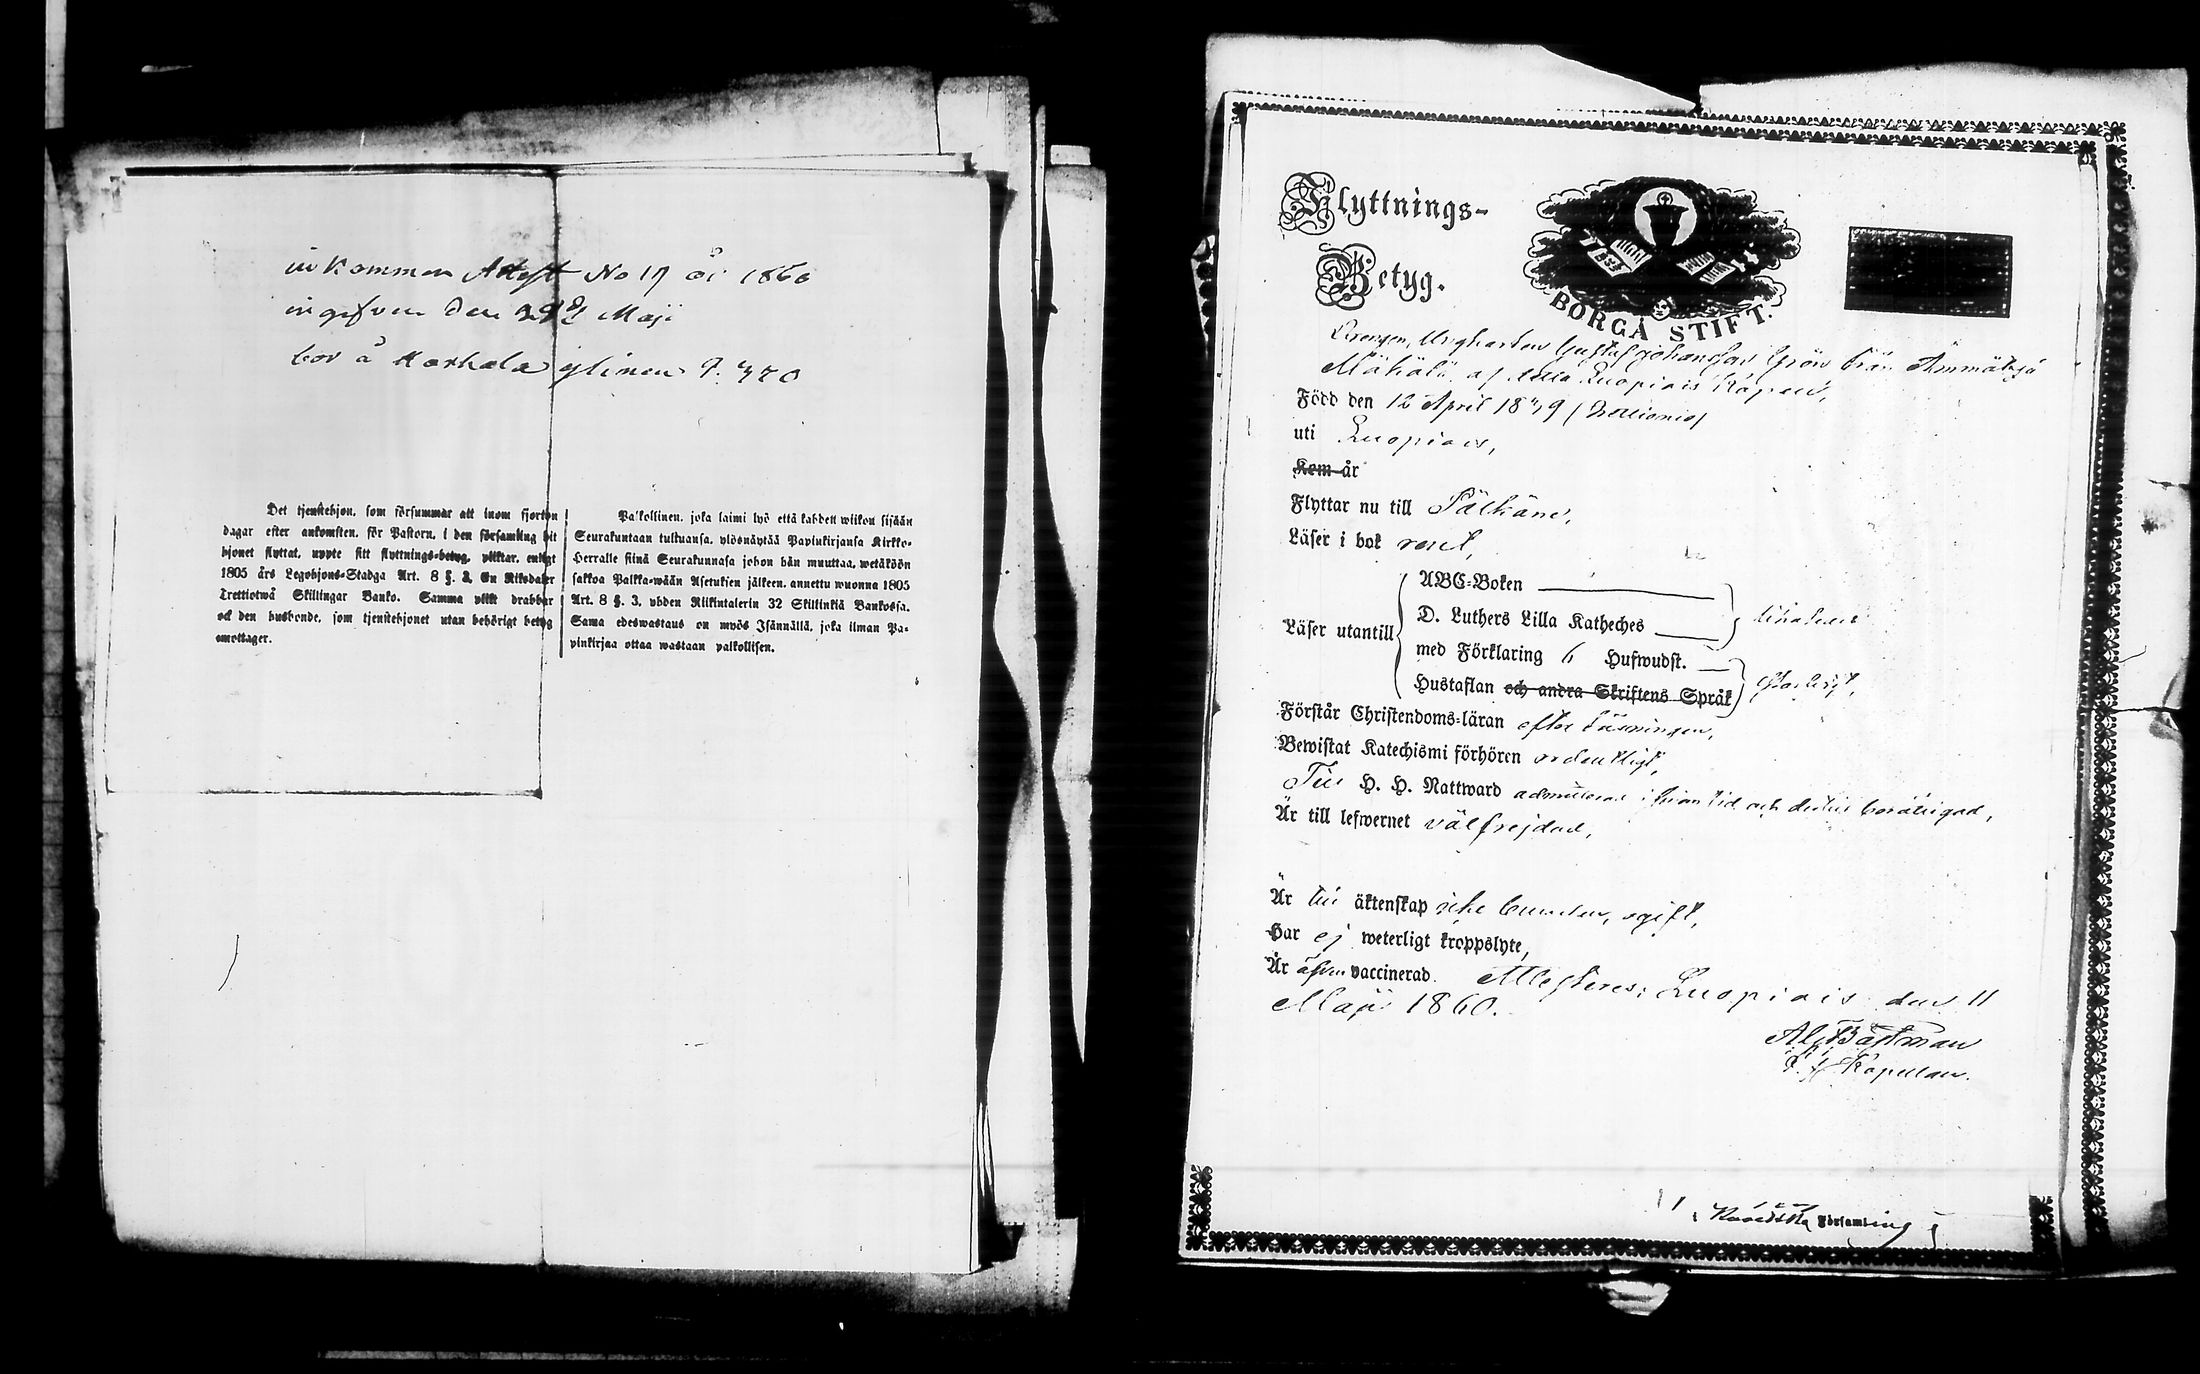 inkommen Attest No 17 år 1860
ingifven den 29 Maji
bor å P. 370
Det tjenstehjon, som försummar att inom fjorton
dagar efter ankomsten, för Pastorn, i den församling dit
hjonet flyttat, uppte sitt flyttnings-betyg, pliktar, enligt
1805 års Legohjons-Stadga Art. 8 §. 3, En Riksdaler
Trettiotwå Skillingar Banko. Samma plikt drabbar
ock den husbonde, som tjenstehjonet utan behörigt betyg
emottager.
Palkollinen, joka laimi lyö että kahdeen wiikon sisään
Seurakuntaan tultuansa, ylösnäyttää Papinkirjansa Kirkko-
Herralle siinä Seurakunnasa johon hän muuttaa, wetäköön
sakkoa Palkka-wään Asetuksen jälkeen, annettu wuonna 1805
Art. 8 §. 3, yhden Riikintalerin 32 Skillinkiä Bankossa.
Sama edeswastaus on myös Isännällä, joka ilman Pa-
pinkirjaa ottaa wastaan palkollisen.
Flyttnings-
Betyg.
BORGÅ STIFT.
Drengen, Ungkarlen Gustaf Johansson Grön från Ammätsä
af Luopiois Kapell,
Född den 12 April 1839
uti Luopiois,
Kom år
Flyttar nu till Pälkäne,
Läser i bok rent,
Läser utantill
ABC-Boken
D. Luthers Lilla Katheches
med Förklaring 6 Hufwudst.
Hustaflan och andra Skriftens Språk
Förstår Christendoms-läran efter läsningen,
Bewistat Katechismi förhören ordentligt,
Till H. H. Nattward admitterad i sinom tid och dertill berättigad,
Är till lefwernet välfrejdad,
Är till äktenskap icke bunden, ogift,
Har ej weterligt kroppslyte,
Är äfven vaccinerad. Attesteres; Luopiois den 11
Maji 1860.
Al. Båtman
Kapellan.
Församling